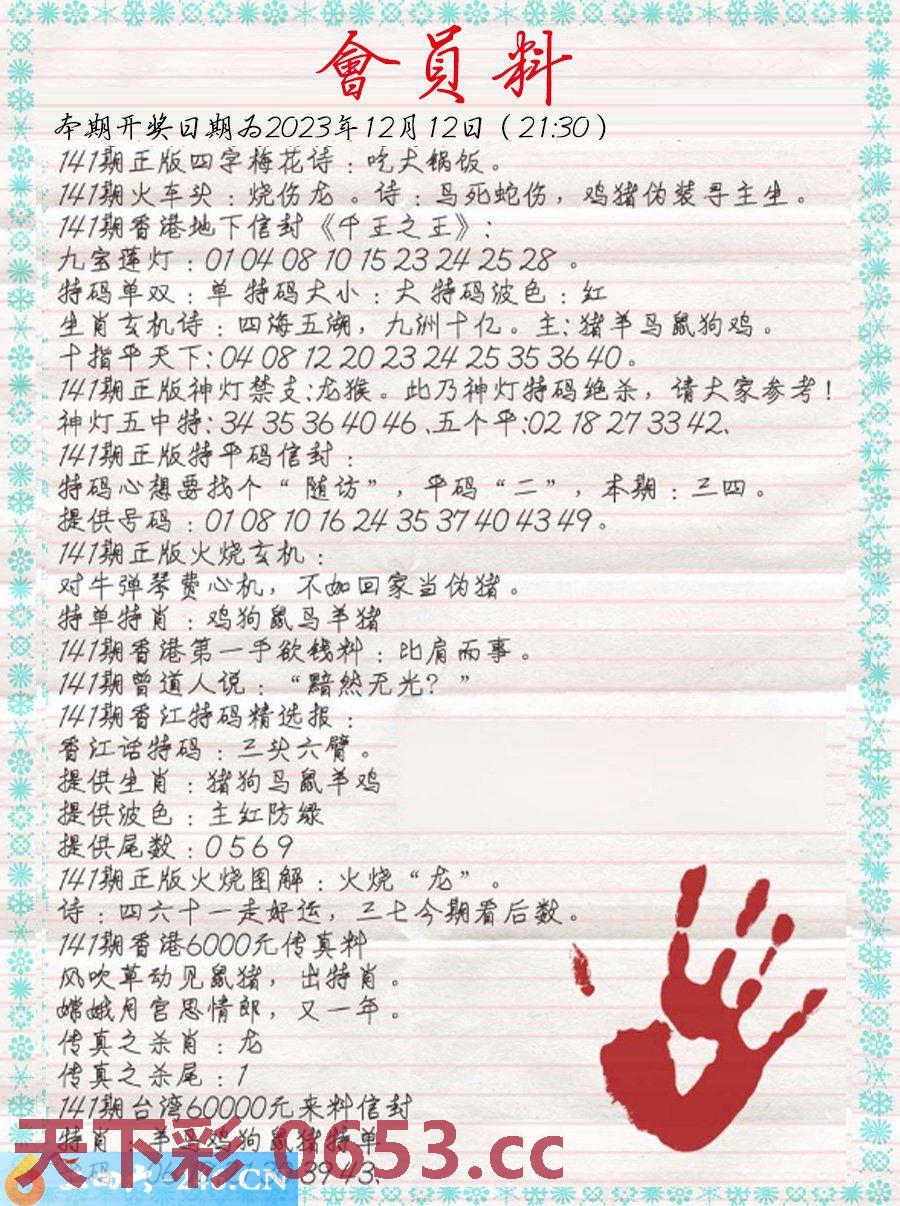 會員料
本期开奖日期为2023年12月12日（21:30）
141期正版四字梅花诗：吃大锅饭。
141期火车头：烧伤龙 。诗：鸟死蛇伤，鸡猪伪装寻主生。
141期香港地下信封《千王之王》：
九宝莲灯：01 04 08 10 15 23 24 25 28 。
特码单双：单 特码大小：大 特码波色：红
生肖玄机诗：四海五湖，九洲十亿。主：猪羊马鼠狗鸡。
十指平天下：04 08 12 20 23 24 25 35 36 40。
141期正版神灯禁支:龙猴。此乃神灯特码绝杀，请大家参考！
神灯五中特：34 35 36 40 46 、五个平:02 18 27 33 42、
141期正版特平码信封：
特码心想要找个“ 随访”，平码“二”，本期：三四。
提供号码：01 08 10 16 24 35 37 40 43 49。
141期正版火烧玄机：
对牛弹琴费心机，不如回家当伪猪。
特单特肖：鸡狗鼠马羊猪
141期香港第一手欲钱料：比肩而事。
141期曾道人说：“黯然无光？”
141期香江特码精选报：
香江话特码：三头六臂。
提供生肖：猪狗马鼠羊鸡
提供波色：主红防绿
提供尾数：0 5 6 9
141期正版火烧图解：火烧“龙”。
诗：四六十一走好运，三七今期看后数。
141期香港6000元传真料
风吹草动见鼠猪，出特肖。
嫦娥月宫思情郎，又一年。
传真之杀肖：龙
传真之杀尾：1
141期台湾60000元来料信封
特肖：羊马鸡狗鼠猪特单
39 43、
天下彩 0653.cc
.CN